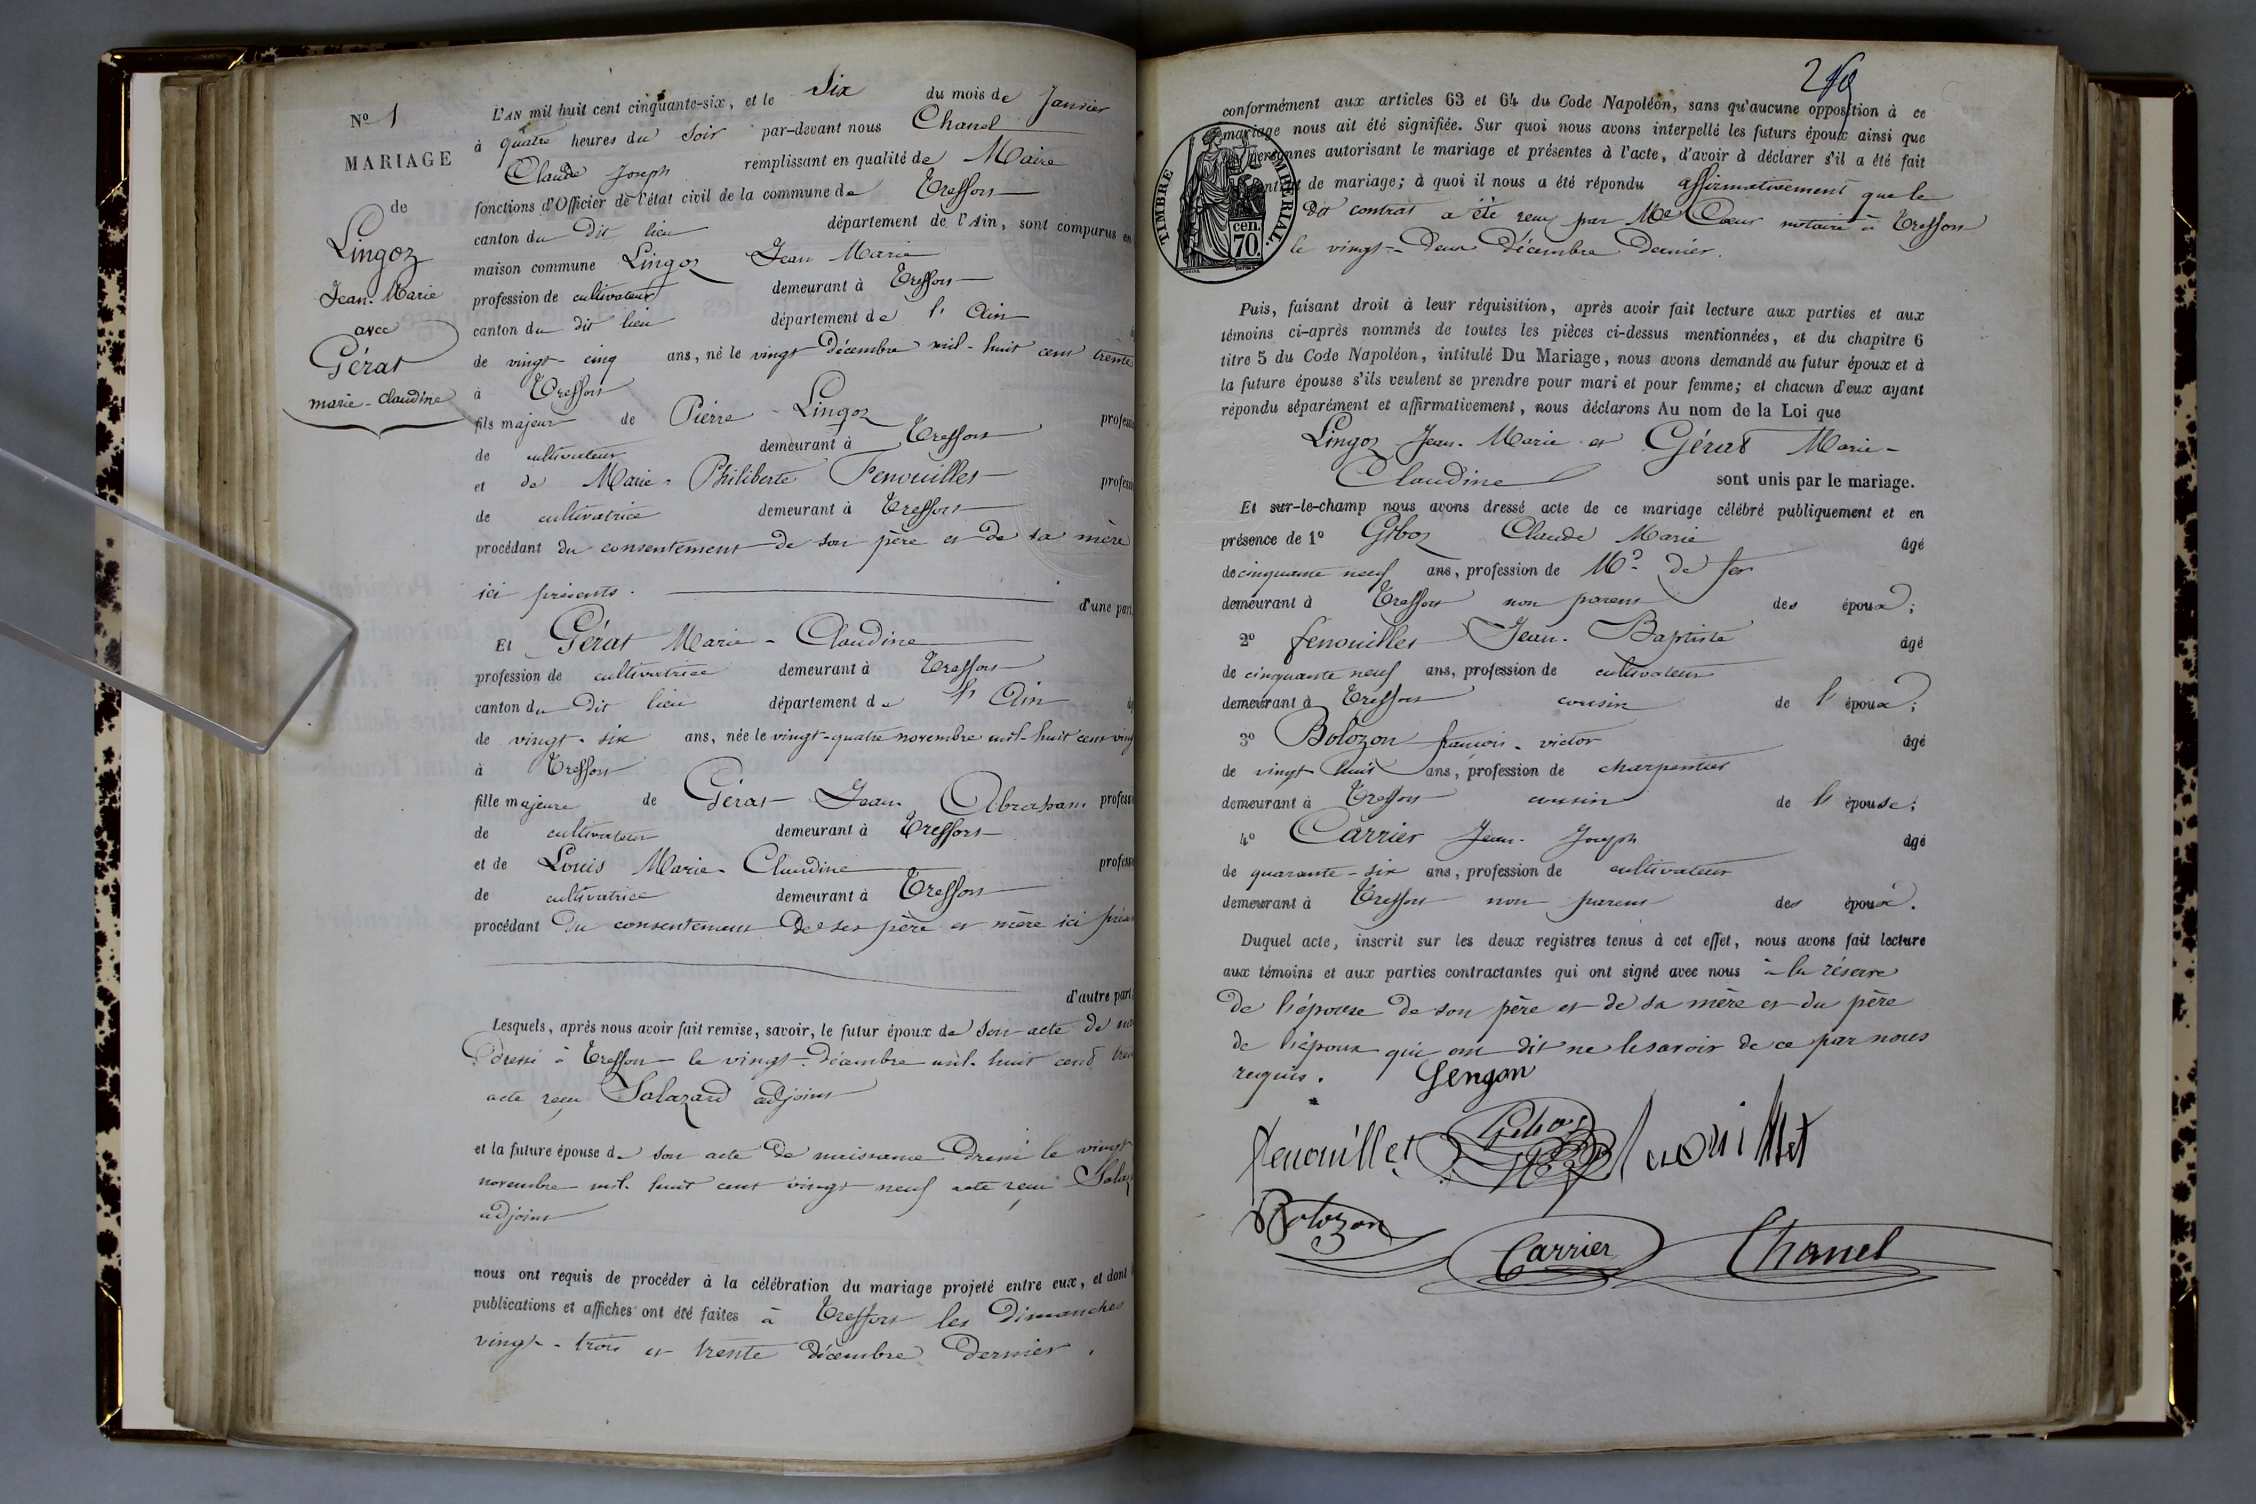 N° 1
MARIAGE
de
Lingoz
Jean-Marie
avec
Gérat
marie-claudine
L'AN mil huit cent cinquante-six, et le Six du mois de Janvier
à quatre heures du Soir par-devant nous Chanel
Claude Joseph remplissant en qualité de Maire
fonctions d'Officier de l'état civil de la commune de Treffort
canton du dit lieu département de l'Ain, sont comparus en
maison commune Lingoz Jean Marie
profession de cultivateur demeurant à Treffort
canton du dit lieu département de l'Ain
de vingt-cinq ans, né le vingt Décembre mil-huit cent trente
à Treffort
fils majeur de Pierre Lingoz profess
de cultivateur demeurant à Treffort
et de Marie-Philiberte Fenouillet profess
de cultivatrice demeurant à Treffort
procédant du consentement de son père et de sa mère
ici présents. d'une part.
Et Gérat Marie-Claudine
profession de cultivatrice demeurant à Treffort
canton du dit lieu département de l'Ain
de vingt-six ans, née le vingt-quatre novembre mil-huit cent ving
à Treffort
fille majeure de Gérat Jean Abraham profess
de cultivateur demeurant à Treffort
et de Louis Marie-Claudine profess
de cultivatrice demeurant à Treffort
procédant du consentement de ses père et mère ici
d'autre part.
Lesquels, après nous avoir fait remise, savoir, le futur époux de son acte de
dressé à Treffort le vingt-décembre mil-huit cent
acte reçu Salazard adjoint
et la future épouse de son acte de naissance dressé le vingt
novembre mil-huit cent vingt neuf acte reçu
adjoint
nous ont requis de procéder à la célébration du mariage projeté entre eux, et dont
publications et affiches ont été faites à Treffort les Dimanches
vingt-trois et trente décembre dernier.
conformément aux articles 63 et 64 du Code Napoléon, sans qu'aucune opposition à ce
mariage nous ait été signifiée. Sur quoi nous avons interpellé les futurs époux ainsi que
personnes autorisant le mariage et présentes à l'acte, d'avoir à déclarer s'il a été fait
de mariage; à quoi il nous a été répondu affirmativement que le
dit contrat a été reçu par Me Coeur notaire à Treffort
le vingt-deux décembre dernier.
TIMBRE IMPÉRIAL.
cen.
70.
Puis, faisant droit à leur réquisition, après avoir fait lecture aux parties et aux
témoins ci-après nommés de toutes les pièces ci-dessus mentionnées, et du chapitre 6
titre 5 du Code Napoléon, intitulé Du Mariage, nous avons demandé au futur époux et à
la future épouse s'ils veulent se prendre pour mari et pour femme; et chacun d'eux ayant
répondu séparément et affirmativement, nous déclarons Au nom de la Loi que
Lingoz Jean-Marie et Gérat Marie-
Claudine sont unis par le mariage.
Et sur-le-champ nous avons dressé acte de ce mariage célébré publiquement et en
présence de 1° Claude Marie âgé
de cinquante neuf ans, profession de Md de fer
demeurant à Treffort non parent des époux;
2° fenouillet Jean-Baptiste âgé
de cinquante neuf ans, profession de cultivateur
demeurant à Treffort cousin de l'époux;
3° Bolozon françois-victor âgé
de vingt huit ans, profession de charpentier
demeurant à Treffort cousin de l'épouse;
4° Carrier Jean-Joseph âgé
de quarante-six ans, profession de cultivateur
demeurant à Treffort non parent des époux.
Duquel acte, inscrit sur les deux registres tenus à cet effet, nous avons fait lecture
aux témoins et aux parties contractantes qui ont signé avec nous à la réserve
de l'épouse de son père et de sa mère et du père
de l'époux qui ont dit ne le savoir de ce par nous
requis.
fenouillet
Bolozon
Carrier
Chanel